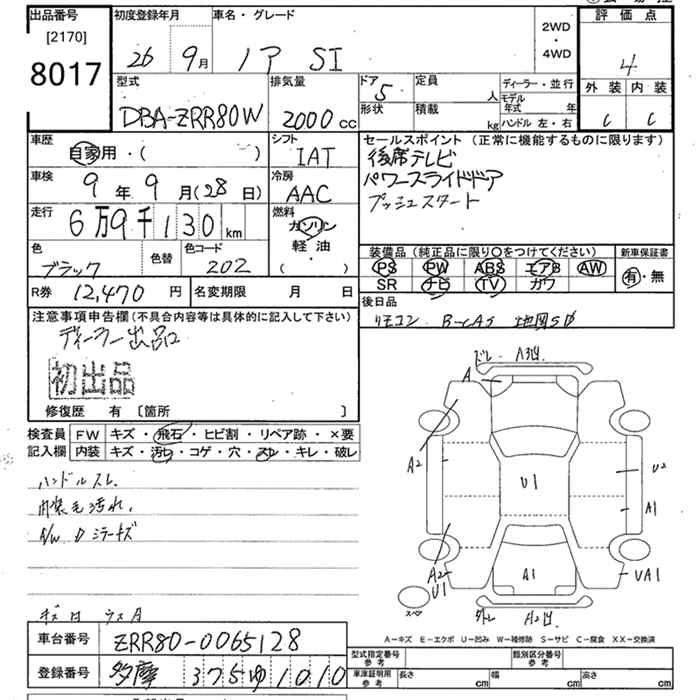 出品番号
[2170]
8017
初度登録年月
26 9月
車名・グレード
ノア SI
2WD
・
4WD
評価点
4
外装 内装
C C
型式
DBA-ZRR80W
排気量
2000 cc
ドア 5
形状
定員 人
積載 kg
ディーラー・並行
モデル年式 年
ハンドル 左・右
車歴
自家用・( )
シフト
IAT
車検
9年9月(28日)
冷房
AAC
走行
6万9千130 km
燃料
ガソリン
軽・油
( )
色
ブラック
色替
色コード
202
R券 12,470円
名変期限 月 日
セールスポイント (正常に機能するものに限ります)
後席テレビ
パワースライドドア
プッシュスタート
装備品 (純正品に限り○をつけてください)
PS PW ABS エアB AW
SR ナビ TV カワ
新車保証書
有・無
後日品
リモコン B-CAS 地図SD
注意事項申告欄 (不具合内容等は具体的に記入して下さい)
ディーラー出品
初出品
修復歴 有 [箇所 ]
検査員
記入欄
FW キズ・飛石・ヒビ割・リペア跡・×要
内装 キズ・汚れ・コゲ・穴・スレ・キレ・破レ
ハンドルスレ
内装毛汚れ、
A/W Dミラーキズ
車台番号 ZRR80-0065128
登録番号 多摩 375ゆ1010
A
A2
U1
U2
A1
A2
U1
A1
UA1
スペア
A2
A－キズ E－エクボ U－凹み W－補修跡 S－サビ C－腐食 XX－交換済
型式指定番号
参考
類別区分番号
参考
車庫証明用
参考
長さ cm
幅 cm
高さ cm